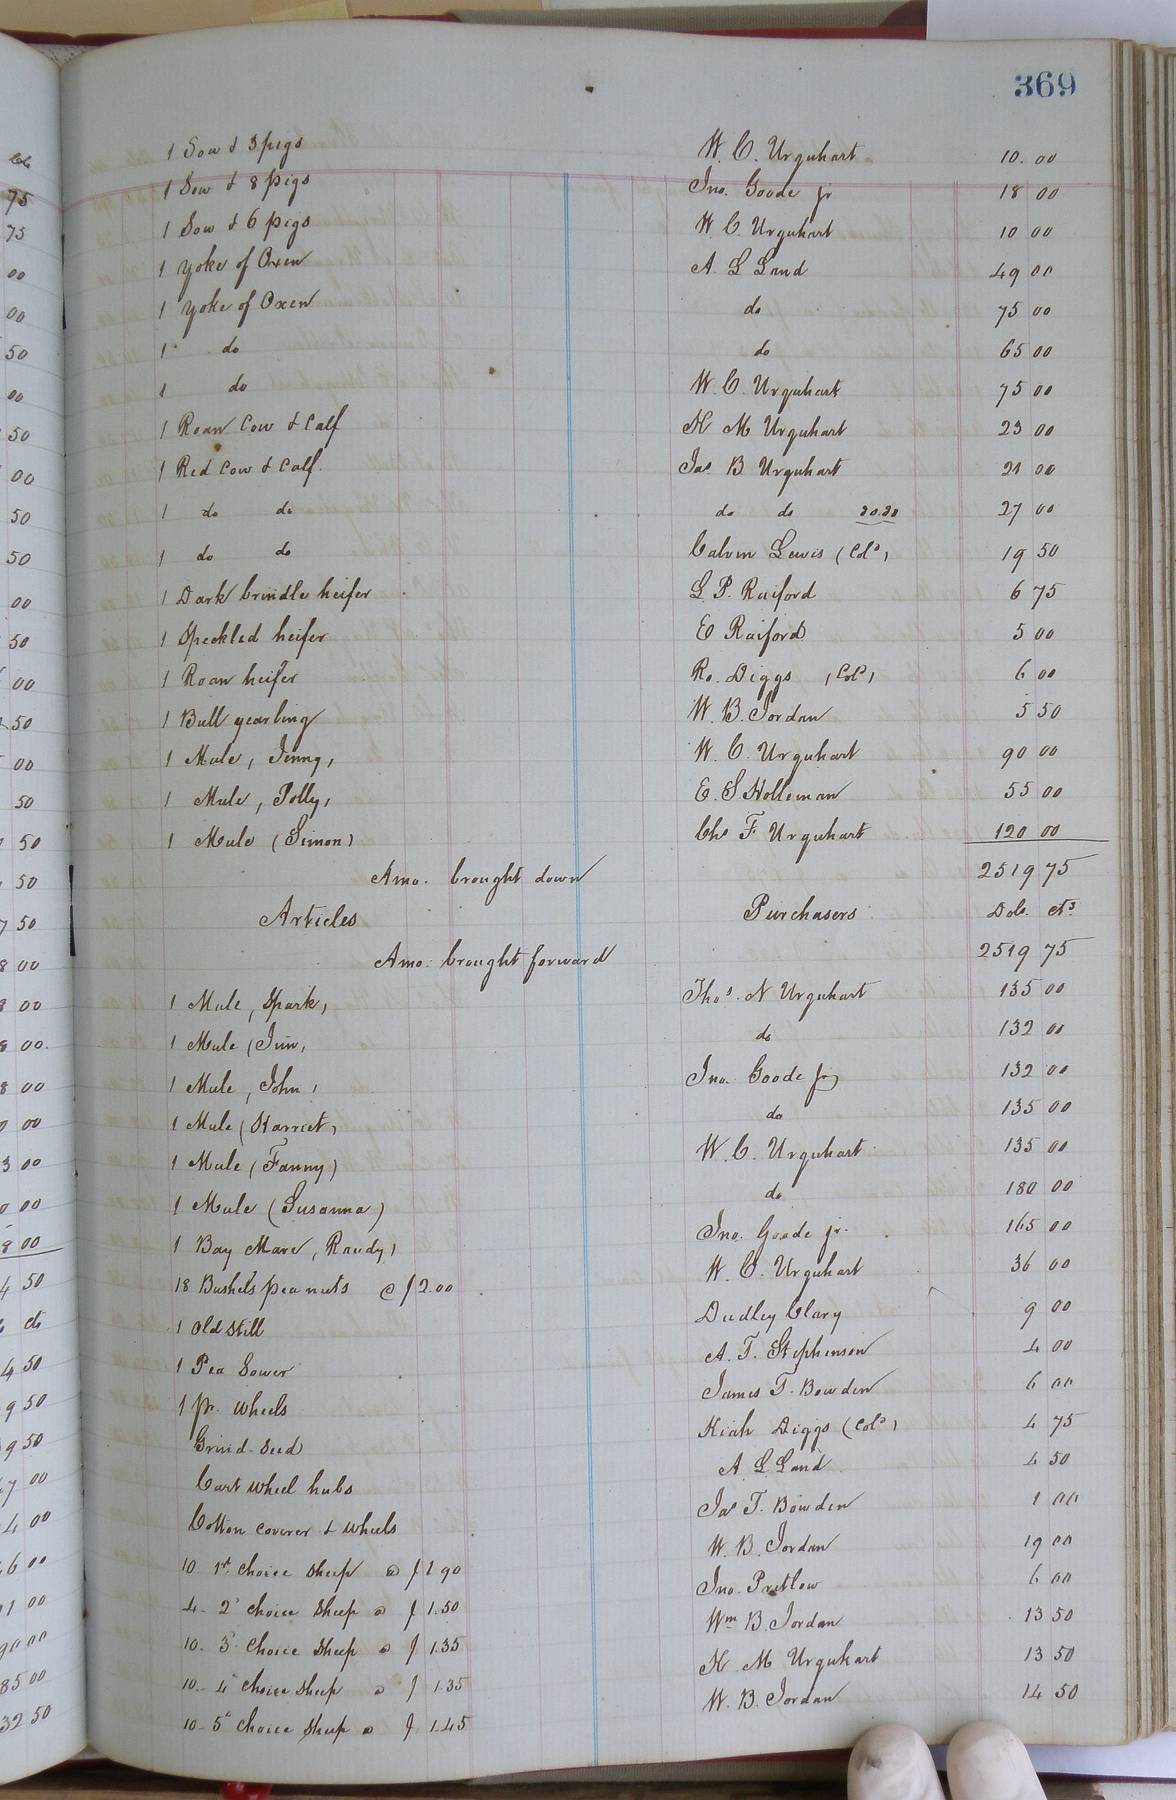 369
1 Sow & 3 pigs W. C. Urquhart 10.00
1 Sow & 8 pigs Jno. Goode jr 18 00
1 Sow & 6 pigs W. C. Urquhart 10 00
1 Yoke of Oxen A. L Land 49 00
1 Yoke of Oxen do 75 00
1 do do 65 00
1 do W. C. Urquhart 75 00
1 Roan Cow & Calf N M Urquhart 23 00
1 Red Cow & Calf. Jas B Urquhart 21 00
1 do do do do 27 00
1 do do Calvin Lewis (Cold) 19 50
1 Dark brindle heifer L. P. Raiford 6 75
1 Speckled heifer E Raiford 5 00
1 Roan heifer Ro. Diggs (Cold) 6 00
1 Bull yearling W. B. Jordan 5 50
1 Mule, Jenny, W. C. Urquhart 90 00
1 Mule, Polly, E. S Holleman 55 00
1 Mule (Simon) Chs F Urquhart 120 00
Amo. brought down 2519 75
Articles Purchasers Dols. cts
Amo: brought forward 2519 75
1 Mule, Spark, Thos. N Urquhart 135 00
1 Mule (Jim, do 132 00
1 Mule, John, Jno. Goode jr 132 00
1 Mule (Harriet, do 135 00
1 Mule (Fanny) W. C. Urquhart 135 00
1 Mule (Susanna) do 180 00
1 Bay Mare, Randy, Jno. Goode jr. 165 00
18 Bushels peanuts @ $2.00 W. C. Urquhart 36 00
1 Old Still Dudley Clary 9 00
1 Pea Sower A. T. Stephenson 4 00
1 pr. wheels James T. Bowden 6 00
Grind-Sted Kiah Diggs (Cold) 4 75
Cart wheel hubs A. L Land 4 50
Cotton coverer & wheels Jas T. Bowden 1 00
10 1st choice sheep @ $1 90 W. B. Jordan 19 00
4 2d choice Sheep @ $1.50 Jno. Pretlow 6 00
10 3d choice Sheep @ $1.35 Wm B. Jordan 13 50
10 4th choice sheep @ $1.35 N. M Urquhart 13 50
10 5th choice Sheep @ $1.45 W. B. Jordan 14 50